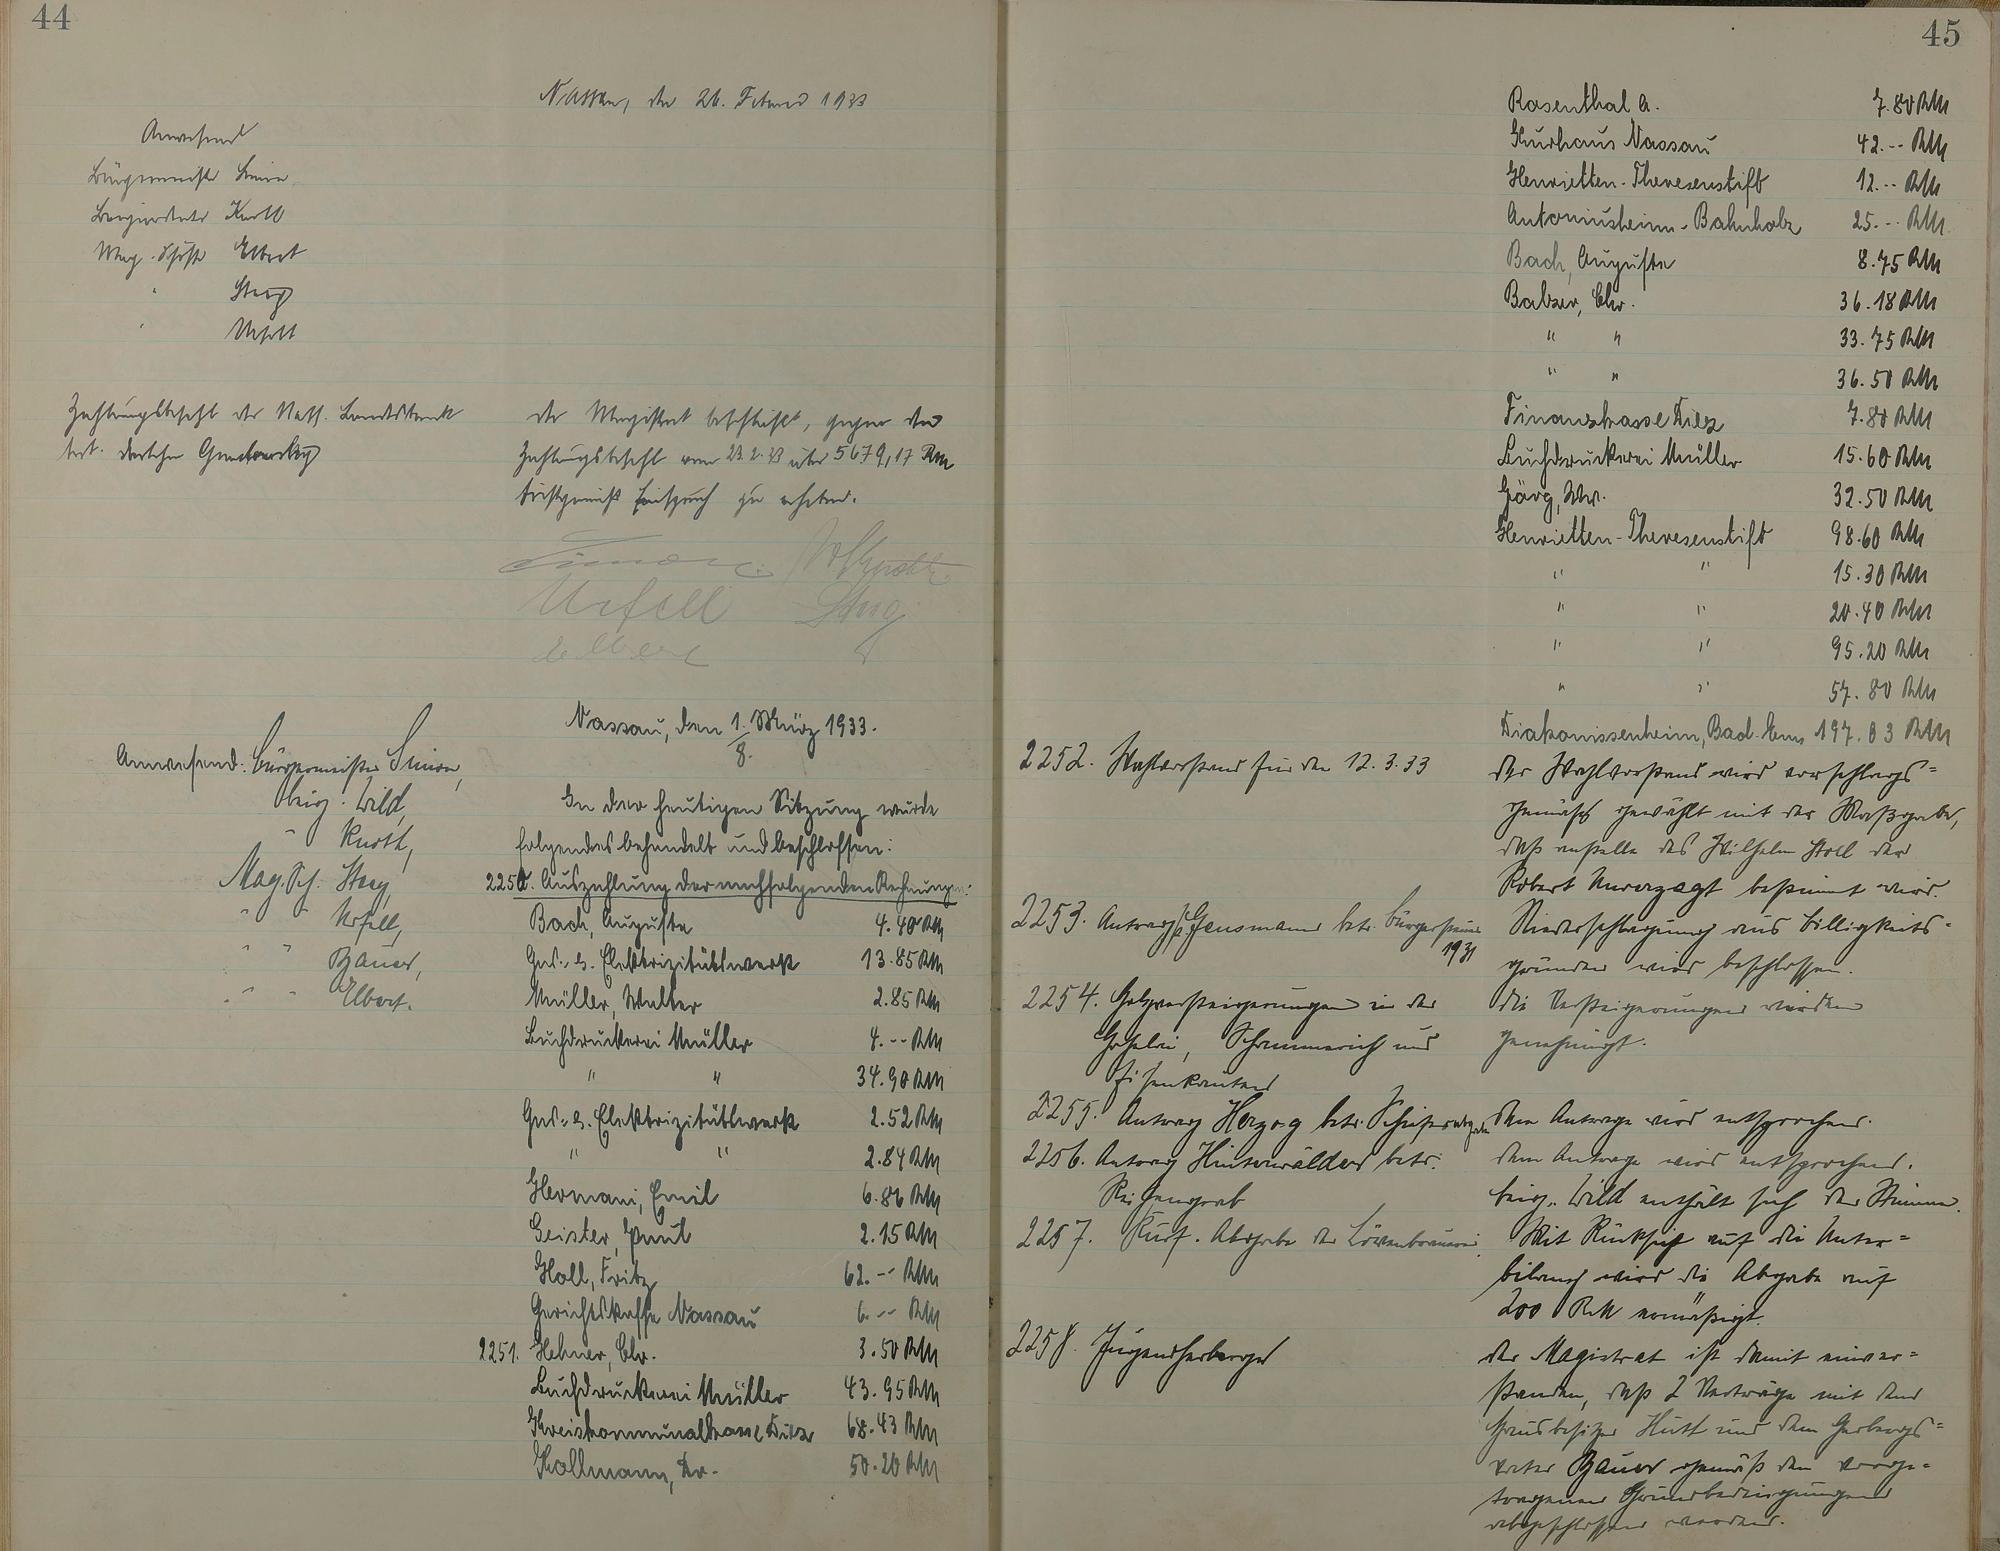 44
Nassau, den 26. Februar 1933
Anwesend
Bürgermeister Simon
Beigeordneter Knoth
Mag. Schöffe Elbert
" Steeg
" Unfell
Zahlungsbefehl der Nass. Landesbank
betr. Darlehn
Der Magistrat beschließt, gegen den
Zahlungsbefehl vom 23.2.33 über 5679,17 RM
fristgemäß Einspruch zu erheben.
Simon Knoth
Unfell Steeg
Elbert
Nassau, den 1./8. März 1933.
Anwesend: Bürgermeister Simon,
Beig. Wild,
" Knoth,
Mag. Sch. Steeg,
" " Unfell,
" " Bauer,
" " Elbert.
In der heutigen Sitzung wurde
folgendes behandelt und beschlossen:
2250. Auszahlung der nachfolgenden Rechnungen:
Bach, Auguste 4.40 RM
Gas- u. Elektrizitätswerk 13.85 RM
Müller, Walter 2.85 RM
Buchdruckerei Müller 4.-- RM
" " 34.90 RM
Gas- u. Elektrizitätswerk 2.52 RM
" " 2.84 RM
Hermani, Emil 6.86 RM
Geister, Paul 2.15 RM
Holl, Fritz 62.-- RM
Gerichtskasse Nassau 6.-- RM
2251. Hehner, Chr. 3.50 RM
Buchdruckerei Müller 43.95 RM
Kreiskommunalkasse Diez 68.43 RM
Kollmann, Dr. 50.20 RM
45
Rosenthal A. 7.80 RM
Kurhaus Nassau 42.-- RM
Henrietten-Theresenstift 12.-- RM
Antoniusheim-Bahnholz 25.-- RM
Bach, Auguste 8.75 RM
Balzer, Chr. 36.18 RM
" " 33.75 RM
" " 36.50 RM
Finanzkasse Diez 7.80 RM
Buchdruckerei Müller 15.60 RM
Görg, Ww. 32.50 RM
Henrietten-Theresenstift 98.60 RM
" " 15.30 RM
" " 20.40 RM
" " 95.20 RM
" " 57.80 RM
Diakonissenheim, Bad-Ems 197.03 RM
2252. Wahlvorstand für den 12.3.33
Der Wahlvorstand wird vorschlags-
gemäß gewählt mit der Maßgabe,
daß anstelle des Wilhelm Stoll der
Robert Unverzagt bestimmt wird.
2253. Antrag Gensmann betr. Bürgersteuer
1931
Niederschlagung aus Billigkeits-
gründen wird beschlossen.
2254. Holzversteigerungen in der
Hohelei, Schimmerich und
Eisenkauten
Die Versteigerungen werden
genehmigt.
2255. Antrag Herzog betr.
Dem Antrage wird entsprochen.
2256. Antrag Hinterwälder betr.
Reihengrab
Dem Antrage wird entsprochen.
Beig. Wild enthält sich der Stimme.
2257. Abgabe der Löwenbrauerei
Mit Rücksicht auf die Unter-
bilanz wird die Abgabe auf
200 RM ermäßigt.
2258. Jugendherberge
Der Magistrat ist damit einver-
standen, daß 2 Verträge mit dem
Hausbesitzer Hutt und dem Herbergs-
vater Bauer gemäß den vorge-
tragenen Grundbedingungen
abgeschlossen werden.